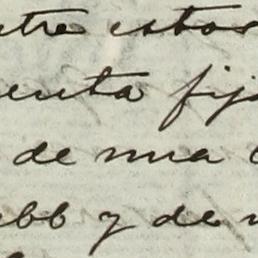 ntre estos
enta fij
de una
ebb y de